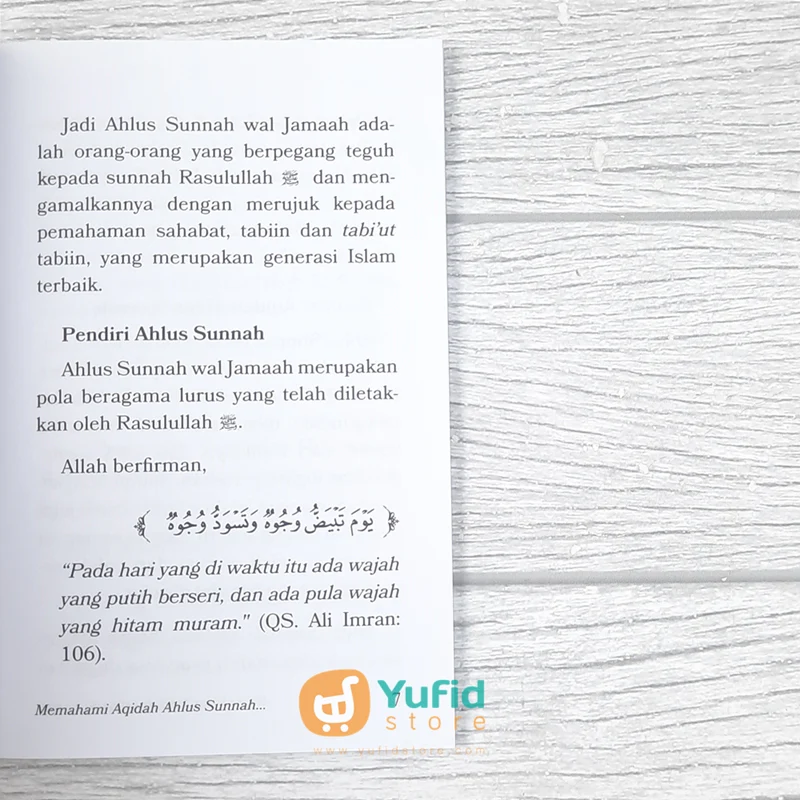 Jadi Ahlus Sunnah wal Jamaah ada-
lah orang-orang yang berpegang teguh
kepada sunnah Rasulullah ﷺ dan men-
gamalkannya dengan merujuk kepada
pemahaman sahabat, tabiin dan tabi'ut
tabiin, yang merupakan generasi Islam
terbaik.
Pendiri Ahlus Sunnah
Ahlus Sunnah wal Jamaah merupakan
pola beragama lurus yang telah diletak-
kan oleh Rasulullah ﷺ.
Allah berfirman,
﴿ يَوْمَ تَبْيَضُّ وُجُوهٌ وَتَسْوَدُّ وُجُوهٌ ﴾
“Pada hari yang di waktu itu ada wajah
yang putih berseri, dan ada pula wajah
yang hitam muram." (QS. Ali Imran:
106).
Memahami Aqidah Ahlus Sunnah... 7
Yufid
store
www.yufidstore.com